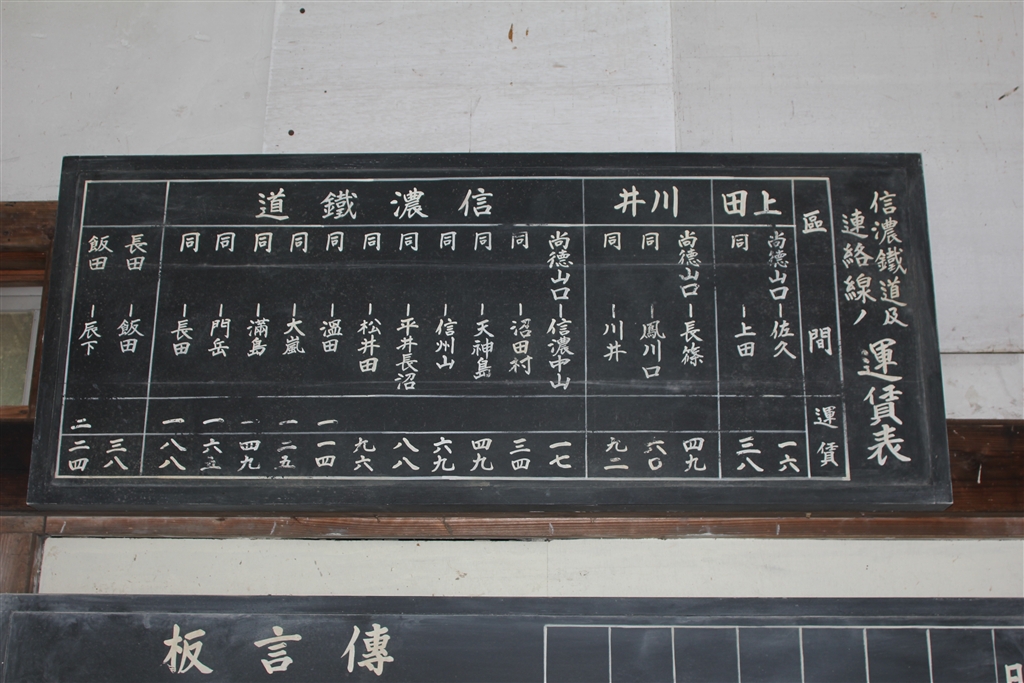 信濃鐵道及
連絡線ノ
運賃表
區間 運賃
上田
尚徳山口ー佐久 一六
同 ー上田 三八
川井
尚徳山口ー長篠 四九
同 ー鳳川口 六〇
同 ー川井 九二
信濃鐵道
尚徳山口ー信濃中山 一七
同 ー沼田村 三四
同 ー天神島 四九
同 ー信州山 六九
同 ー平井長沼 八八
同 ー松井田 九六
同 ー溫田 一一四
同 ー大嵐 一二五
同 ー滿島 一四九
同 ー門岳 一六五
同 ー長田 一八八
長田 ー飯田 三八
飯田 ー辰下 二二四
傳言板